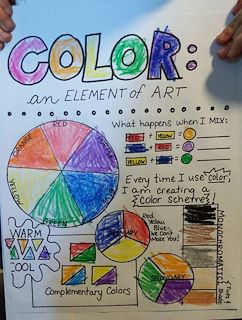 COLOR:
an ELEMENT of ART
What happens when I MIX:
RED + YELLOW =
RED + BLUE =
YELLOW
ORANGE
RED
GREEN
Every time I use color,
I am creating a
color scheme
PRIMARY
Red,
Yellow
Blue..
We Can't
Make You!
WARM
COOL
MONOCHROMATIC
SECONDARY
Complementary Colors